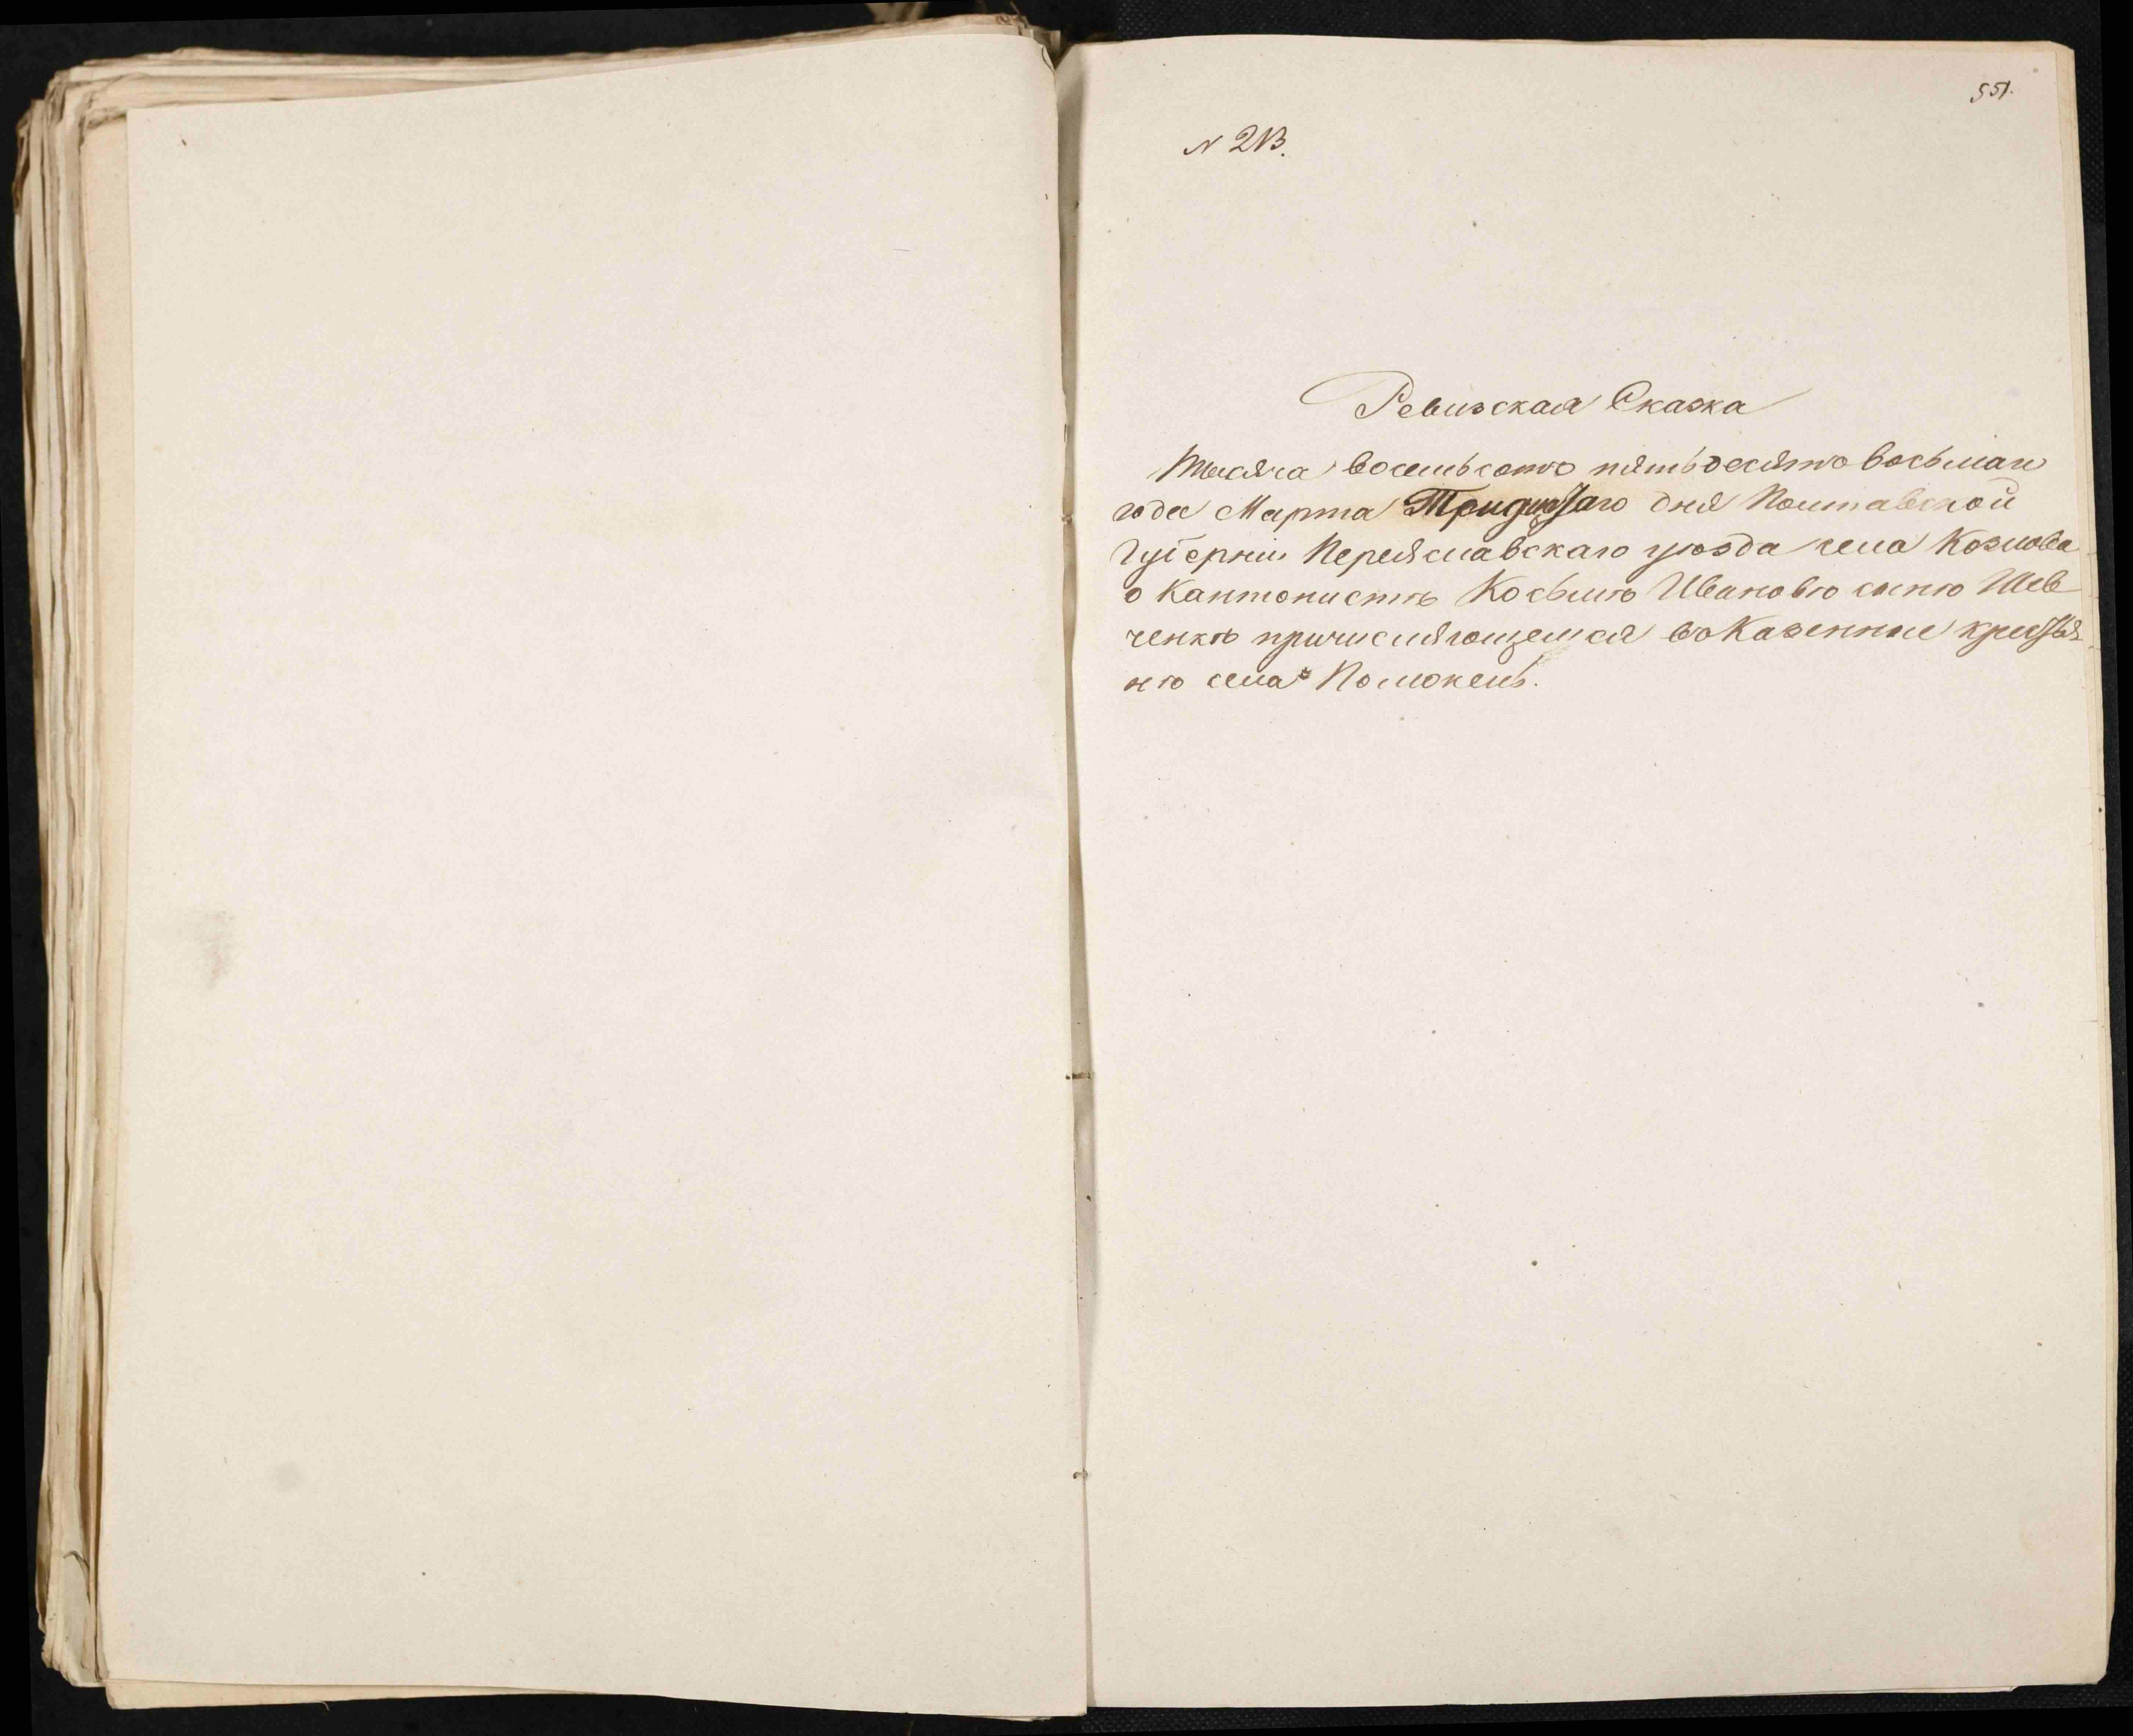 551.
N 213.
Ревизская Сказка
Тысяча восемьсотъ пятьдесятъ восьмаго
года Марта Тридцатаго дня Полтавской
Губерніи Переяславскаго уѣзда села Козлова
о Кантонистѣ Козьмѣ Ивановѣ сынѣ Шев
ченкѣ причисляющемся въ Казенные крестья-
нѣ села Помоклеи.